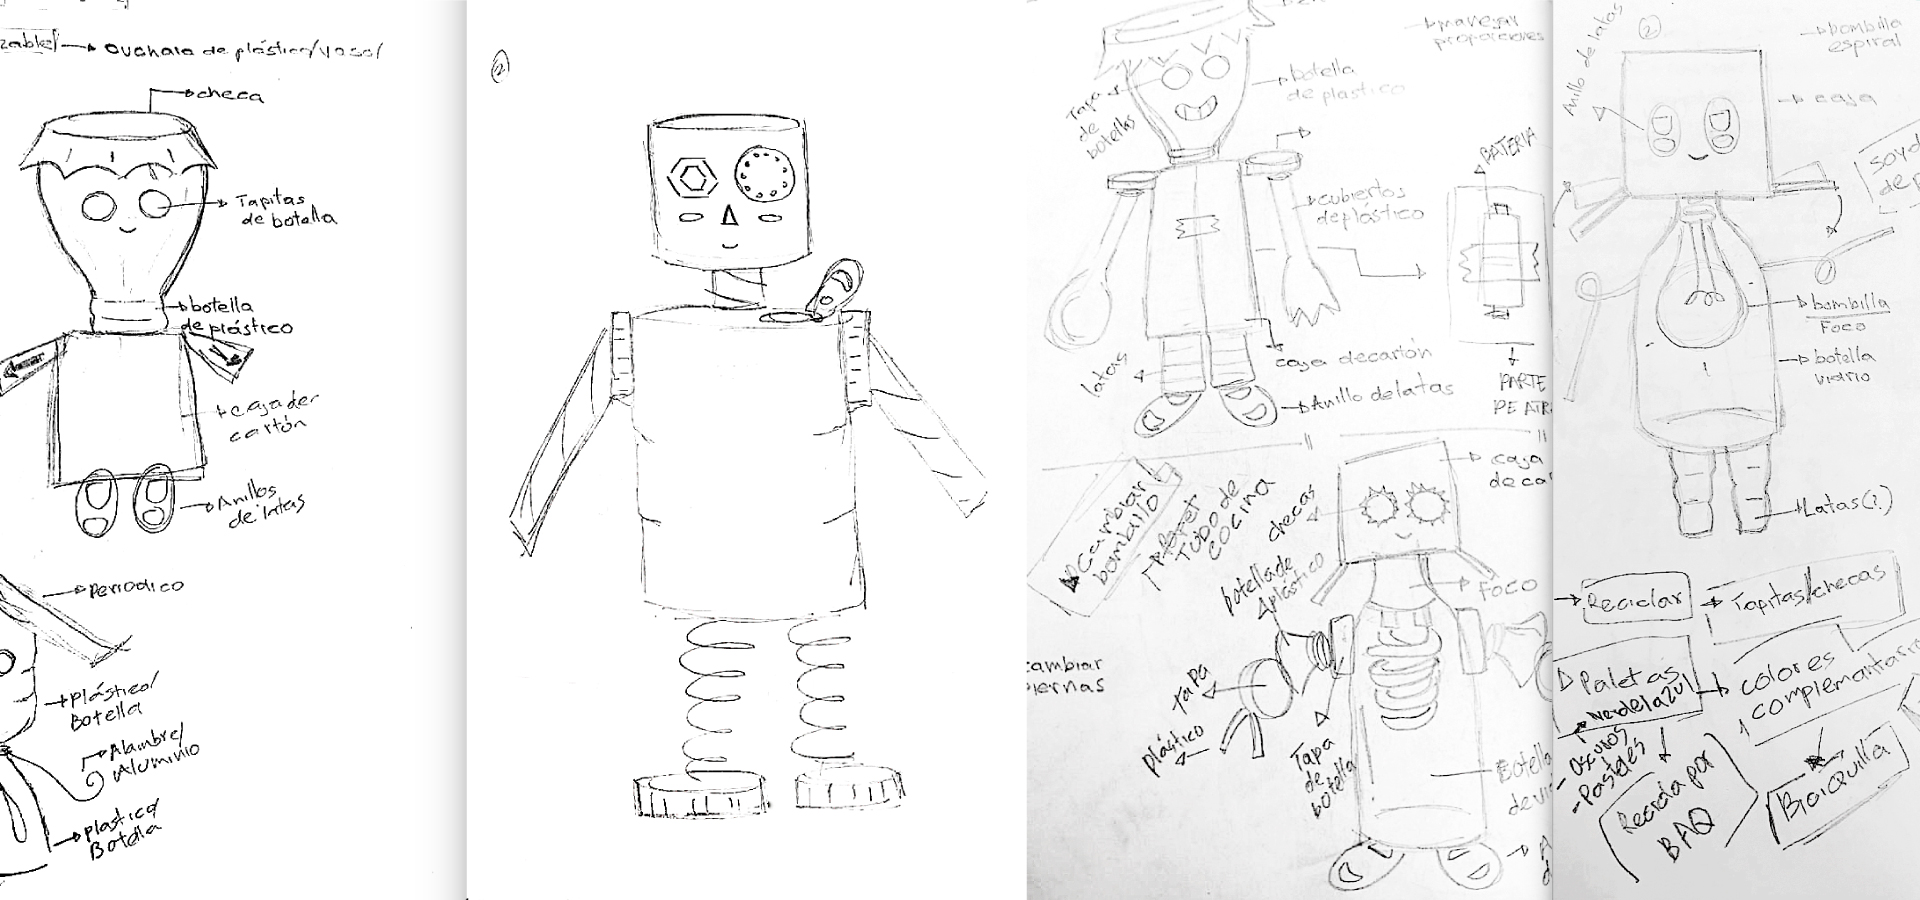 cuchara de plástico/vaso/
checa
Tapitas
de botella
botella
de plástico
caja de
cartón
Anillos
de latas
Periodico
plástico/
Botella
Alambre/
Aluminio
plastico/
Botella
2
manejar
proporciones
Tapa
de
botellas
botella
de plastico
cubiertos
de plástico
BATERIA
latas
caja de cartón
Anillo de latas
PARTE
DE ATR
Cambiar
bombillo
TUDO DE
COCINA
checas
caja
de ca
botella de
plástico
Foco
cambiar
iernas
Tapa
plástico
Tapa
de
botella
Botella
de vi
Anillo de latas
2
bombilla
espiral
caja
soy d
de p
bombilla
Foco
botella
vidrio
Latas(?)
Reciclar
Tapitas/checas
Paletas
Verde/azul
colores
complementarios
- Oscuros
- Pasteles
Recicla por
BAQ
BiciQuilla